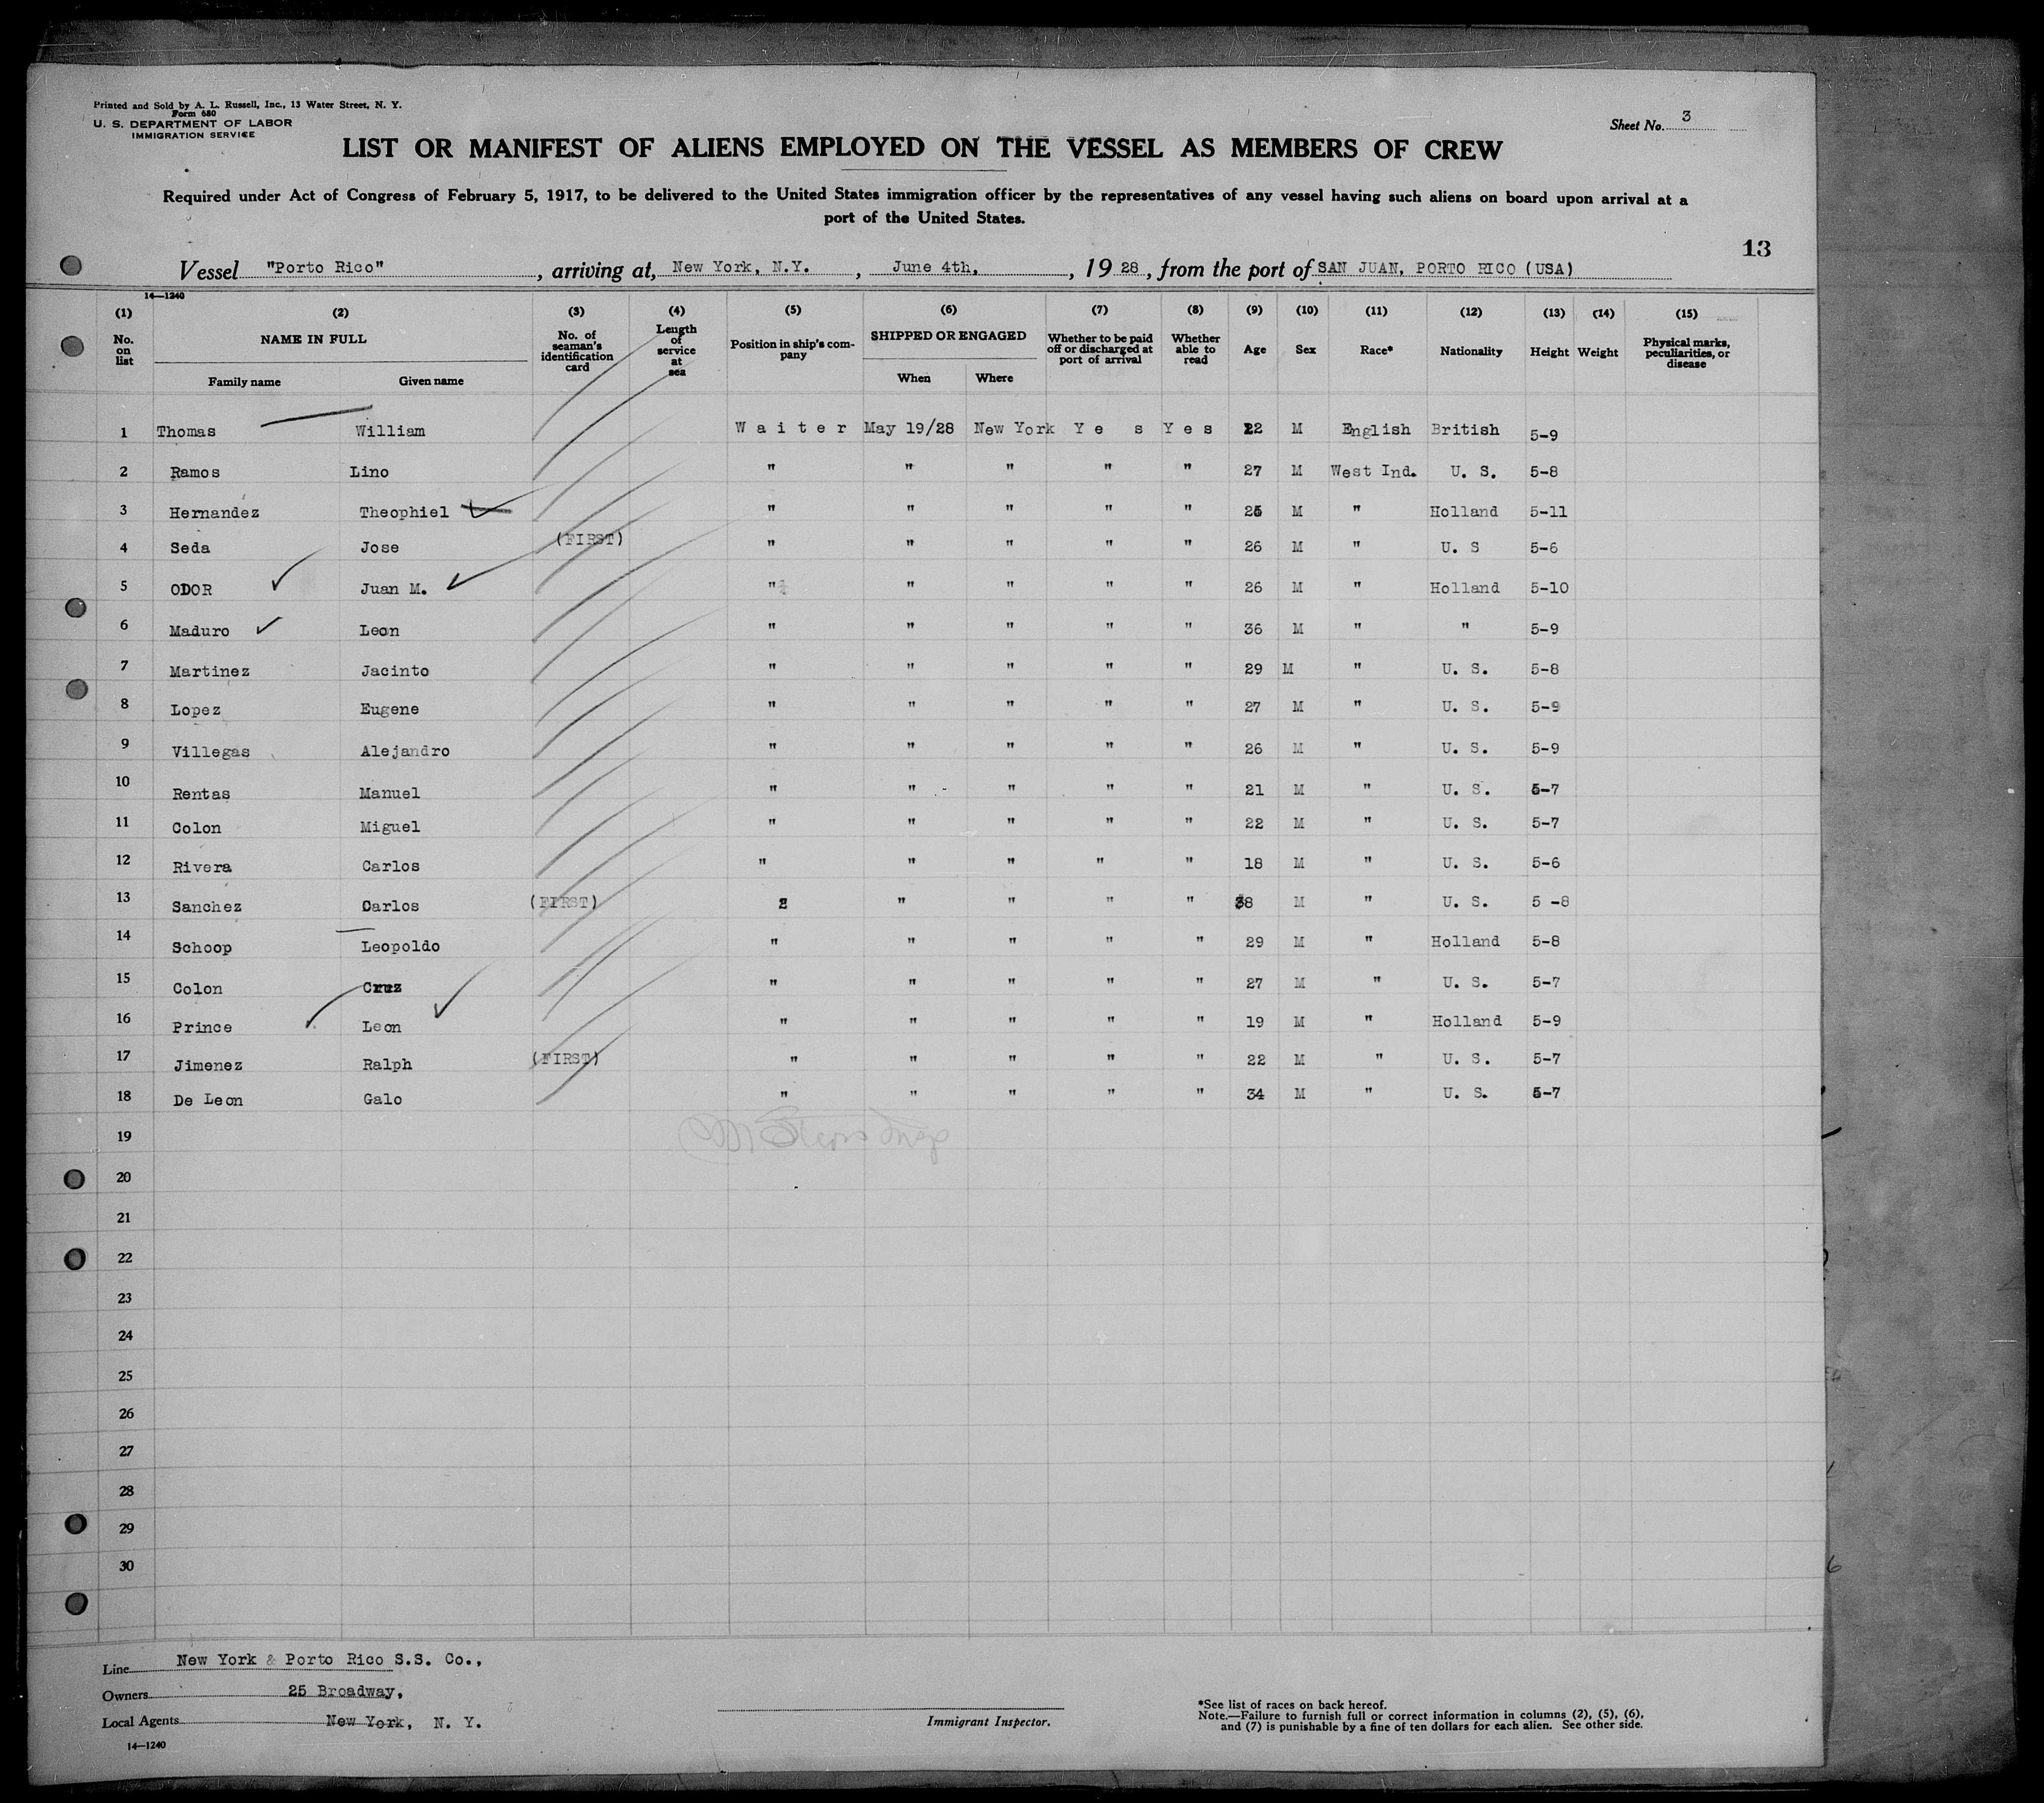 Printed and Sold by A. L. Russell, Inc., 13 Water Street, N. Y.
Form 680
U. S. DEPARTMENT OF LABOR
IMMIGRATION SERVICE
Sheet No. 3
LIST OR MANIFEST OF ALIENS EMPLOYED ON THE VESSEL AS MEMBERS OF CREW
Required under Act of Congress of February 5, 1917, to be delivered to the United States immigration officer by the representatives of any vessel having such aliens on board upon arrival at a
port of the United States.
13
Vessel "Porto Rico", arriving at, New York, N.Y., June 4th, , 19 28, from the port of SAN JUAN, PORTO RICO (USA)
14—1240
(1) (2) (3) (4) (5) (6) (7) (8) (9) (10) (11) (12) (13) (14) (15)
No. on list NAME IN FULL No. of seaman's identification card Length of service at sea Position in ship's company SHIPPED OR ENGAGED Whether to be paid off or discharged at port of arrival Whether able to read Age Sex Race* Nationality Height Weight Physical marks, peculiarities, or disease
Family name Given name When Where
1 Thomas William Waiter May 19/28 New York Yes Yes 22 M English British 5-9
2 Ramos Lino " " " " " 27 M West Ind. U. S. 5-8
3 Hernandez Theophiel " " " " " 25 M " Holland 5-11
4 Seda Jose (FIRST) " " " " " 26 M " U. S 5-6
5 ODOR Juan M. " " " " " 26 M " Holland 5-10
6 Maduro Leon " " " " " 36 M " " 5-9
7 Martinez Jacinto " " " " " 29 M " U. S. 5-8
8 Lopez Eugene " " " " " 27 M " U. S. 5-9
9 Villegas Alejandro " " " " " 26 M " U. S. 5-9
10 Rentas Manuel " " " " " 21 M " U. S. 5-7
11 Colon Miguel " " " " " 22 M " U. S. 5-7
12 Rivera Carlos " " " " " 18 M " U. S. 5-6
13 Sanchez Carlos (FIRST) " " " " 38 M " U. S. 5 -8
14 Schoop Leopoldo " " " " " 29 M " Holland 5-8
15 Colon Cruz " " " " " 27 M " U. S. 5-7
16 Prince Leon " " " " " 19 M " Holland 5-9
17 Jimenez Ralph (FIRST) " " " " " 22 M " U. S. 5-7
18 De Leon Galo " " " " " 34 M " U. S. 5-7
19
20
21
22
23
24
25
26
27
28
29
30
Line New York & Porto Rico S.S. Co.,
Owners 25 Broadway,
Local Agents New York, N. Y.
14—1240
Immigrant Inspector.
*See list of races on back hereof.
Note.—Failure to furnish full or correct information in columns (2), (5), (6),
and (7) is punishable by a fine of ten dollars for each alien. See other side.